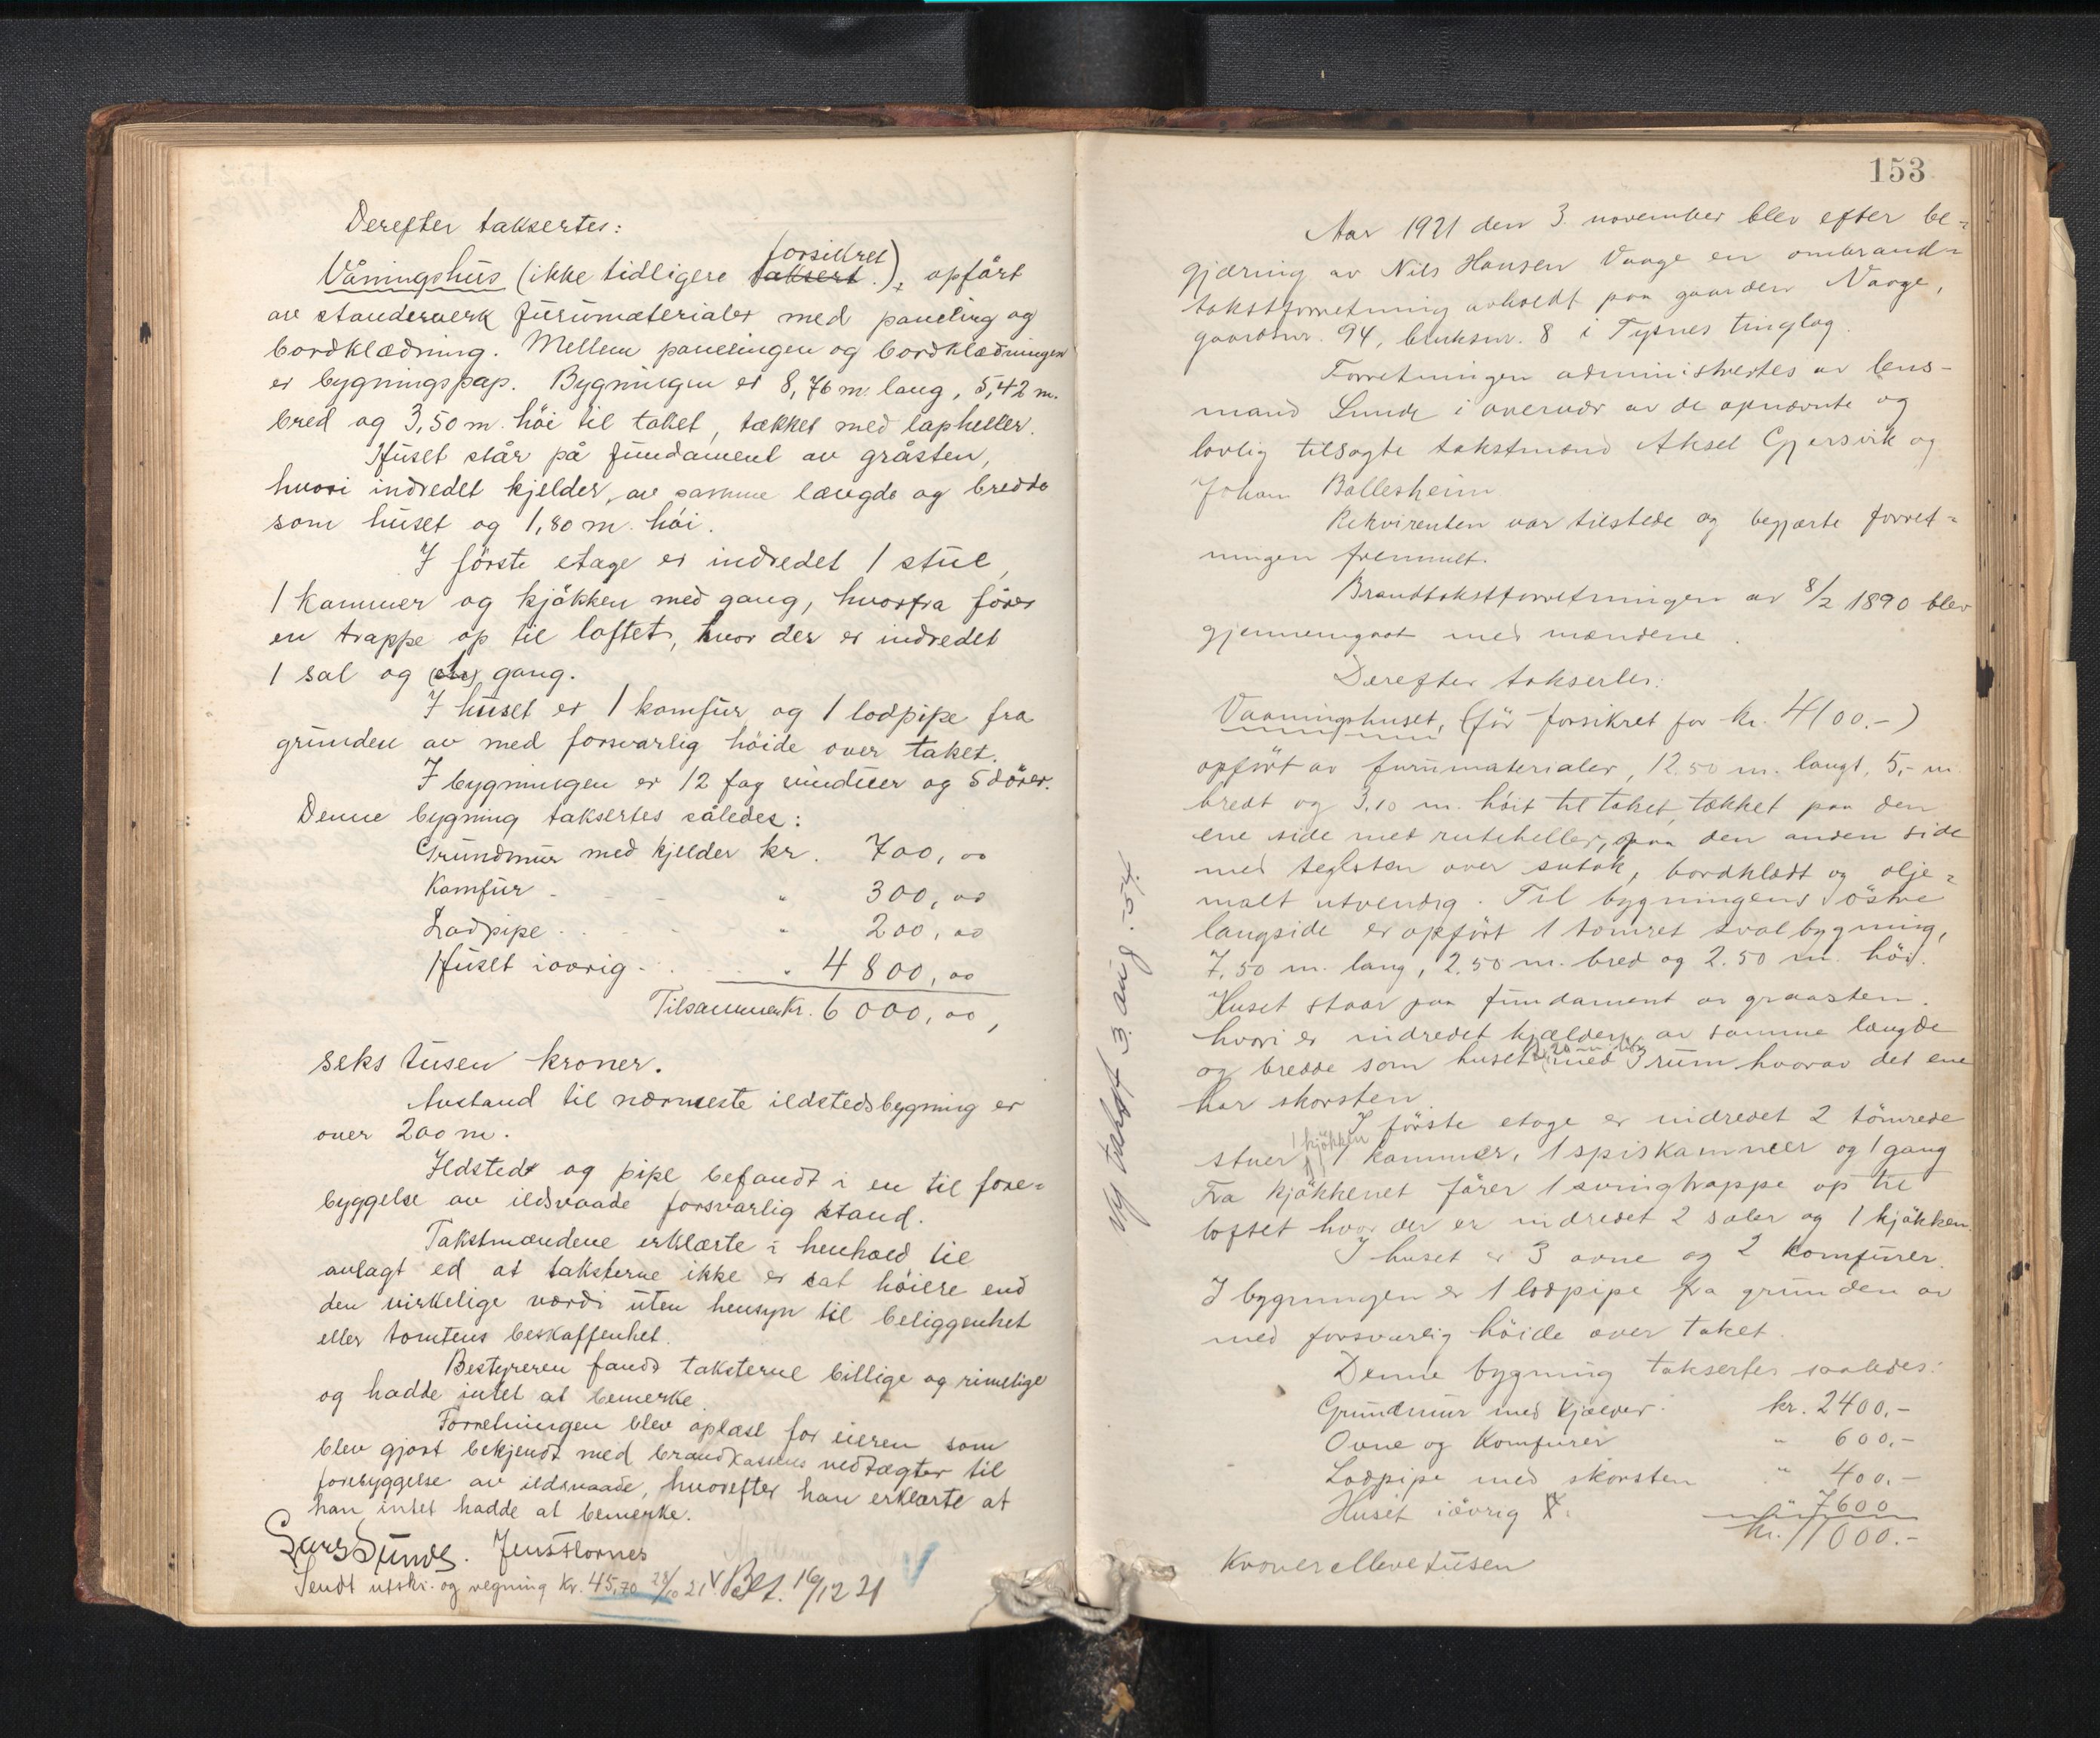 Derefter taksertes:
Våningshus (ikke tidligere taksert forsikret), opført
av standerverk furumaterialer med paneling og
bordklædning. Mellem panelingen og bordklædningen
er bygningspap. Bygningen er 8,76 m. lang, 5,42 m.
bred og 3,50 m. høi til taket, tækket med lapheller.
Huset står på fundament av gråsten,
hvori indredet kjelder, av samme længde og bredde
som huset og 1,80 m. høi.
I første etage er indredet 1 stue,
1 kammer og kjøkken med gang, hvorfra fører
en trappe op til loftet, hvor der er indredet
1 sal og gang.
I huset er 1 komfur og 1 lodpipe fra
grunden av med forsvarlig høide over taket.
I bygningen er 12 fag vinduer og 5 dører.
Denne bygning taksertes således:
Grundmur med kjelder kr. 700,00
Komfur - - - " 300,00
Lodpipe . . . . " 200,00
Huset iøvrig - . . . " 4800,00
Tilsammen kr. 6000,00,
seks tusen kroner.
Avstand til nærmeste ildstedsbygning er
over 200 m.
Ildsted og pipe befandt i en til fore-
byggelse av ildsvaade forsvarlig stand.
Takstmændene erklærte i henhold til
avlagt ed at taksterne ikke er sat høiere end
den virkelige værdi uten hensyn til beliggenhet
eller tomtens beskaffenhet.
Bestyreren fandt taksterne billige og rimelige
og hadde intet at bemerke.
Forretningen blev oplæst for eieren som
blev gjort bekjendt med brandkassens vedtægter til
forebyggelse av ildsvaade, hvorefter han erklærte at
han intet hadde at bemerke.
Lars Sunde. Jens Flornes
Sendt utskr. og regning kr. 45,70 28/10 21 Bet. 16/12 21
153
Aar 1921 den 3. november blev efter be-
gjæring av Nils Hansen Vaage en ombrand-
takstforretning avholdt paa gaarden Vaage,
gaardsnr. 94, bruksnr. 8 i Tysnes tinglag.
Forretningen administrertes av lens-
mand Sunde i overvær av de opnævnte og
lovlig tilsagte takstmænd Aksel Gjersvik og
Johan Ballesheim
Rekvirenten var tilstede og begjærte forret-
ningen fremmet.
Brandtakstforretningen av 8/2 1890 blev
gjennemgaat med mændene.
Derefter taksertes:
Vaaningshuset, (før forsikret for kr. 4100.-)
opført av furumaterialer, 12.50 m. langt, 5,- m.
bredt og 3.10 m. høit til taket, tækket paa den
ene side med ruteheller, paa den anden side
med teglsten over sutak, bordklædt og olje-
malt utvendig. Til bygningens østre
langside er opført 1 tømret svalbygning,
7.50 m. lang, 2.50 m. bred og 2.50 m. høi.
Huset staar paa fundament av graasten.
hvori er indredet kjælder, av samme længde
og bredde som huset med 3 rum hvorav det ene
har skorsten.
I første etage er indredet 2 tømrede
stuer, 1 kjøkken 1 kammer, 1 spiskammer og 1 gang
Fra kjøkkenet fører 1 svingtrappe op til
loftet hvor der er indredet 2 saler og 1 kjøkken.
I huset er 3 ovne og 2 komfurer.
I bygningen er 1 lodpipe fra grunden av
med forsvarlig høide over taket.
Denne bygning taksertes saaledes:
Grundmur med kjælder. kr. 2400.-
Ovne og komfurer " 600.-
Lodpipe med skorsten " 400.-
Huset iøvrig " 7600
kr. 11000.-
Kroner elleve tusen
Ny takst 3. aug. 54.